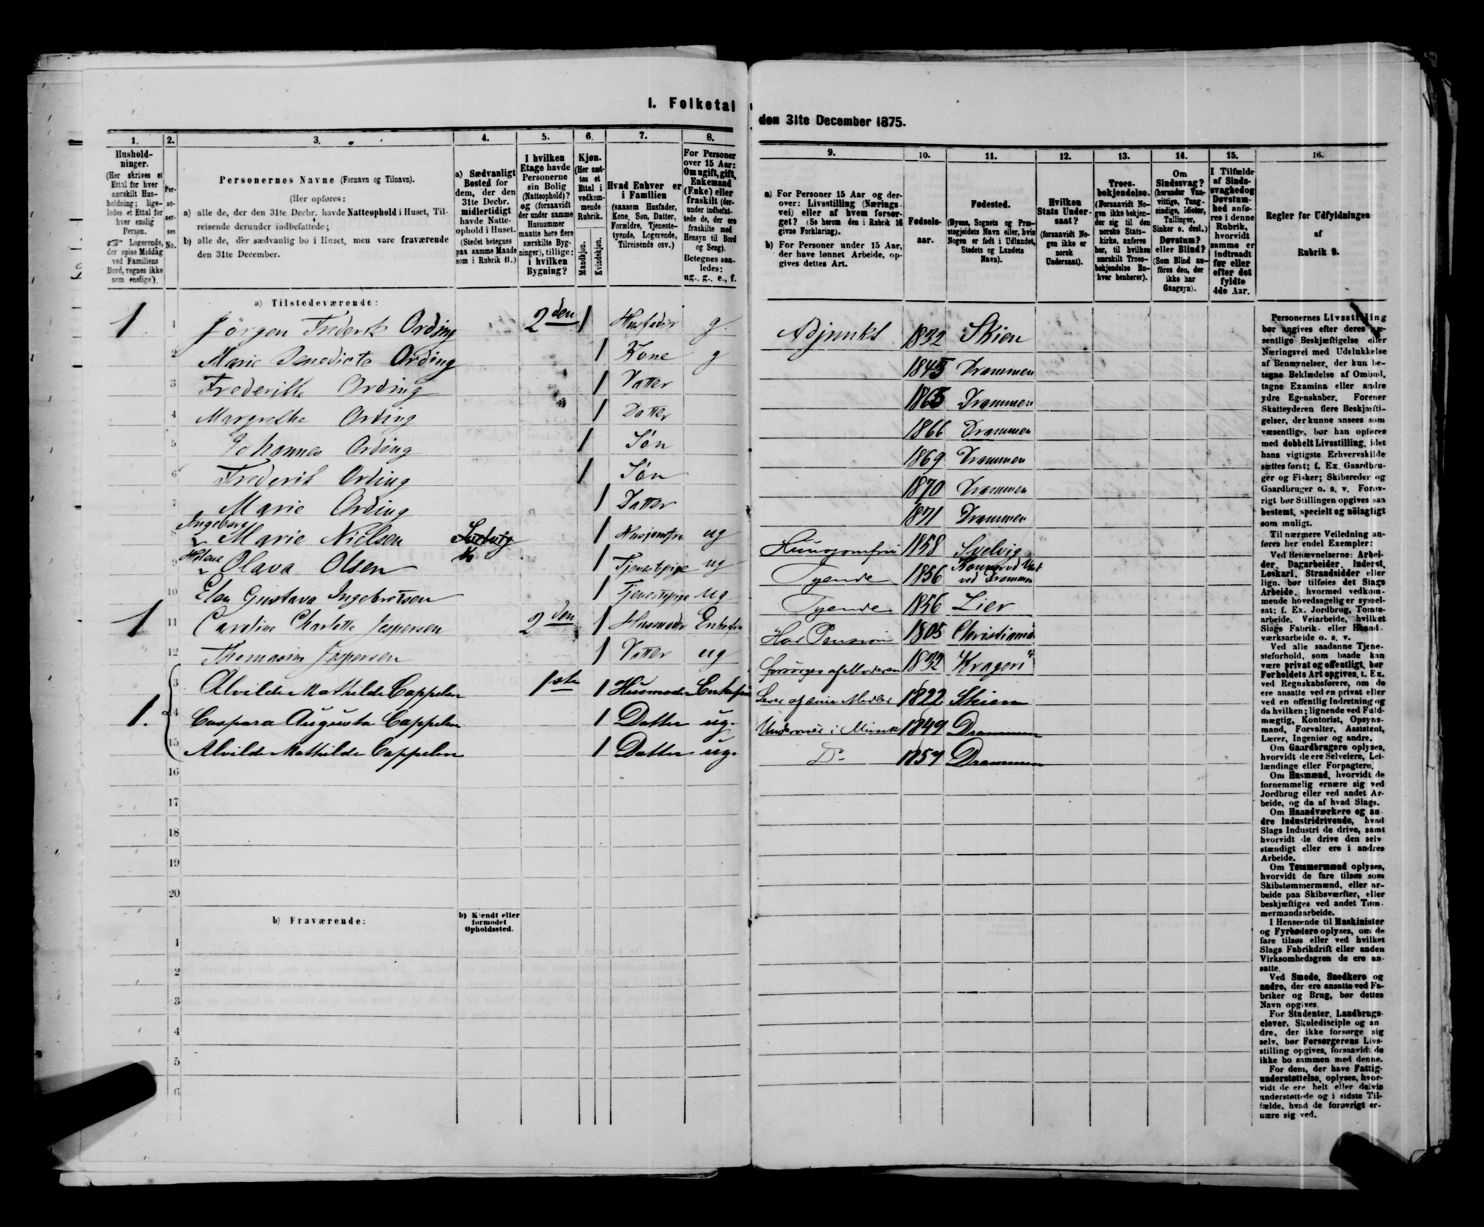 I. Folketal
den 31te December 1875.
1. 2. 3. 4. 5. 6. 7. 8.
9. 10. 11. 12. 13. 14. 15. 16.
Husholdninger.
(Her skrives et Ettal for hver særskilt Husholdning; ligeledes et Ettal for hver enslig Person.
☞ Logerende, der spise Middag ved Familiens Bord, regnes ikke som enslige).
Personernes No.
Personernes Navne (Fornavn og Tilnavn).
(Her opføres:
a) alle de, der den 31te Decbr. havde Natteophold i Huset, Tilreisende derunder indbefattede;
b) alle de, der sædvanlig bo i Huset, men vare fraværende den 31te December.
a) Sædvanligt Bosted for dem, der den 31te Decbr. midlertidigt havde Natteophold i Huset.
(Stedet betegnes paa samme Maade som i Rubrik 11.)
I hvilken Etage havde Personerne sin Bolig (Natteophold)? og (forsaavidt der under samme Husnummer maatte høre flere særskilte Bygninger), tillige: i hvilken Bygning?
Kjøn. (Her sættes et Ettal i vedkommende Rubrik.
Mandkjøn. Kvindekjøn.
Hvad Enhver er i Familien
(saasom Husfader, Kone, Søn, Datter, Forældre, Tjenestetyende, Logerende, Tilreisende osv.)
For Personer over 15 Aar: Om ugift, gift, Enkemand (Enke) eller fraskilt (derunder indbefattede de, der ere fraskilte med Hensyn til Bord og Seng). Betegnes saaledes: ug., g., e., f.
a) For Personer 15 Aar og derover: Livsstilling (Næringsvei) eller af hvem forsørget? (Se herom den i Rubrik 16 givne Forklaring).
b) For Personer under 15 Aar, der have lønnet Arbeide, opgives dettes Art.
Fødselsaar.
Fødested.
(Byens, Sognets og Præstegjeldets Navn eller, hvis Nogen er født i Udlandet, Stedets og Landets Navn).
Hvilken Stats Undersaat?
(forsaavidt Nogen ikke er norsk Undersaat).
Troesbekjendelse.
(Forsaavidt Nogen ikke bekjender sig til den norske Statskirke, anføres her, til hvilken særskilt Troesbekjendelse Enhver henhører).
Om Sindssvag? (herunder Vanvittige, Tungsindige, Idioter, Tullinger, Sinker o. desl.) Døvstum? eller Blind? (Som Blind anføres den, der ikke har Gangsyn).
I Tilfælde af Sindssvaghed og Døvstumhed anføres i denne Rubrik, hvorvidt samme er indtraadt før eller efter det fyldte 4de Aar.
Regler for Udfyldningen af Rubrik 9.
a) Tilstedeværende:
1. 1 Jørgen Frederik Ording 2den 1 Husfader g. Adjunkt 1832 Skien
2 Marie Benedicte Ording 1 Kone g 1845 Drammen
3 Frederikke Ording 1 Datter 1865 Drammen
4 Margrethe Ording 1 Datter 1866 Drammen
5 Johannes Ording 1 Søn 1869 Drammen
6 Frederik Ording 1 Søn 1870 Drammen
7 Marie Ording 1 Datter 1871 Drammen
8 Ingeborg Marie Nielsen Svelvig 1 Husjomfru ug Huusjomfru 1858 Svelvig
9 Olava Olsen 1 Tjenestepige ug Tyende 1856 ved Drammen
10 Elen Gustava Ingebretsen 1 Tjenestepige ug Tyende 1856 Lier
1 11 Caroline Charlotte Jespersen 2den 1 Husmoder Enkefru Har Pension 1805 Christiania
12 Thomasine Jespersen 1 Datter ug forsørges af Moderen 1832 Kragerø
13 Alvilde Mathilde Cappelen 1ste 1 Husmoder Enkefru Lever af sine Midler 1822 Skien
1. 14 Caspara Augusta Cappelen 1 Datter ug. Underviser i Musik 1849 Drammen
15 Alvilde Mathilde Cappelen 1 Datter ug. Do 1857 Drammen
16
17
18
19
20
b) Fraværende:
b) Kjendt eller formodet Opholdssted.
1
2
3
4
5
6
Personernes Livsstilling bør angives efter deres væsentlige Beskjæftigelse eller Næringsvei med Udelukkelse af Benævnelser, der kun betegne Beklædelse af Ombud, tagne Examina eller andre ydre Egenskaber. Forener Skatteyderen flere Beskjæftigelser, der kunne ansees som væsentlige, bør han opføres med dobbelt Livsstilling, idet hans vigtigste Erhvervskilde sættes først; f. Ex. Gaardbruger og Fisker; Skibsreder og Gaardbruger o. s. v. Forøvrigt bør Stillingen opgives saa bestemt, specielt og nøiagtigt som muligt.
Til nærmere Veiledning anføres her endel Exempler:
Ved Benævnelserne: Arbeider, Dagarbeider, Inderst, Løskarl, Strandsidder eller lign. bør tilføies det Slags Arbeide, hvormed vedkommende hovedsagelig er sysselsat; f. Ex. Jordbrug, Tomtearbeide, Veiarbeide, hvilket Slags Fabrik- eller Haandværksarbeide o. s. v.
Ved alle saadanne Tjenesteforhold, som baade kan være privat og offentligt, bør Forholdets Art opgives, t. Ex. ved Regnskabsførere, om de ere ansatte ved en privat eller ved en offentlig Indretning og da hvilken; lignende ved Fuldmægtig, Kontorist, Opsynsmand, Forvalter, Assistent, Lærer, Ingeniør og andre.
Om Gaardbrugere oplyses, hvorvidt de ere Selveiere, Leilændinge eller Forpagtere.
Om Husmænd, hvorvidt de fornemmelig ernære sig ved Jordbrug eller ved andet Arbeide, og da af hvad Slags.
Om Haandværkere og andre Industridrivende, hvad Slags Industri de drive, samt hvorvidt de drive den selvstændigt eller ere i andres Arbeide.
Om Tømmermænd oplyses, hvorvidt de fare tilsøs som Skibstømmermænd, eller arbeide paa Skibsværfter, eller beskjæftiges ved andet Tømmermandsarbeide.
I Henseende til Maskinister og Fyrbødere oplyses, om de fare tilsøs eller ved hvilket Slags Fabrikdrift eller anden Virksomhedsgren de ere ansatte.
Ved Smede, Snedkere og andre, der ere ansatte ved Fabriker og Brug, bør dettes Navn opgives.
For Studenter, Landbrugselever, Skoledisciple og andre, der ikke forsørge sig selv, bør Forsørgerens Livsstilling opgives, forsaavidt de ikke bo sammen med denne.
For dem, der have Fattigunderstøttelse, oplyses, hvorvidt de ere helt eller delvis understøttede og i sidste Tilfælde, hvad de forøvrigt ernære sig ved.